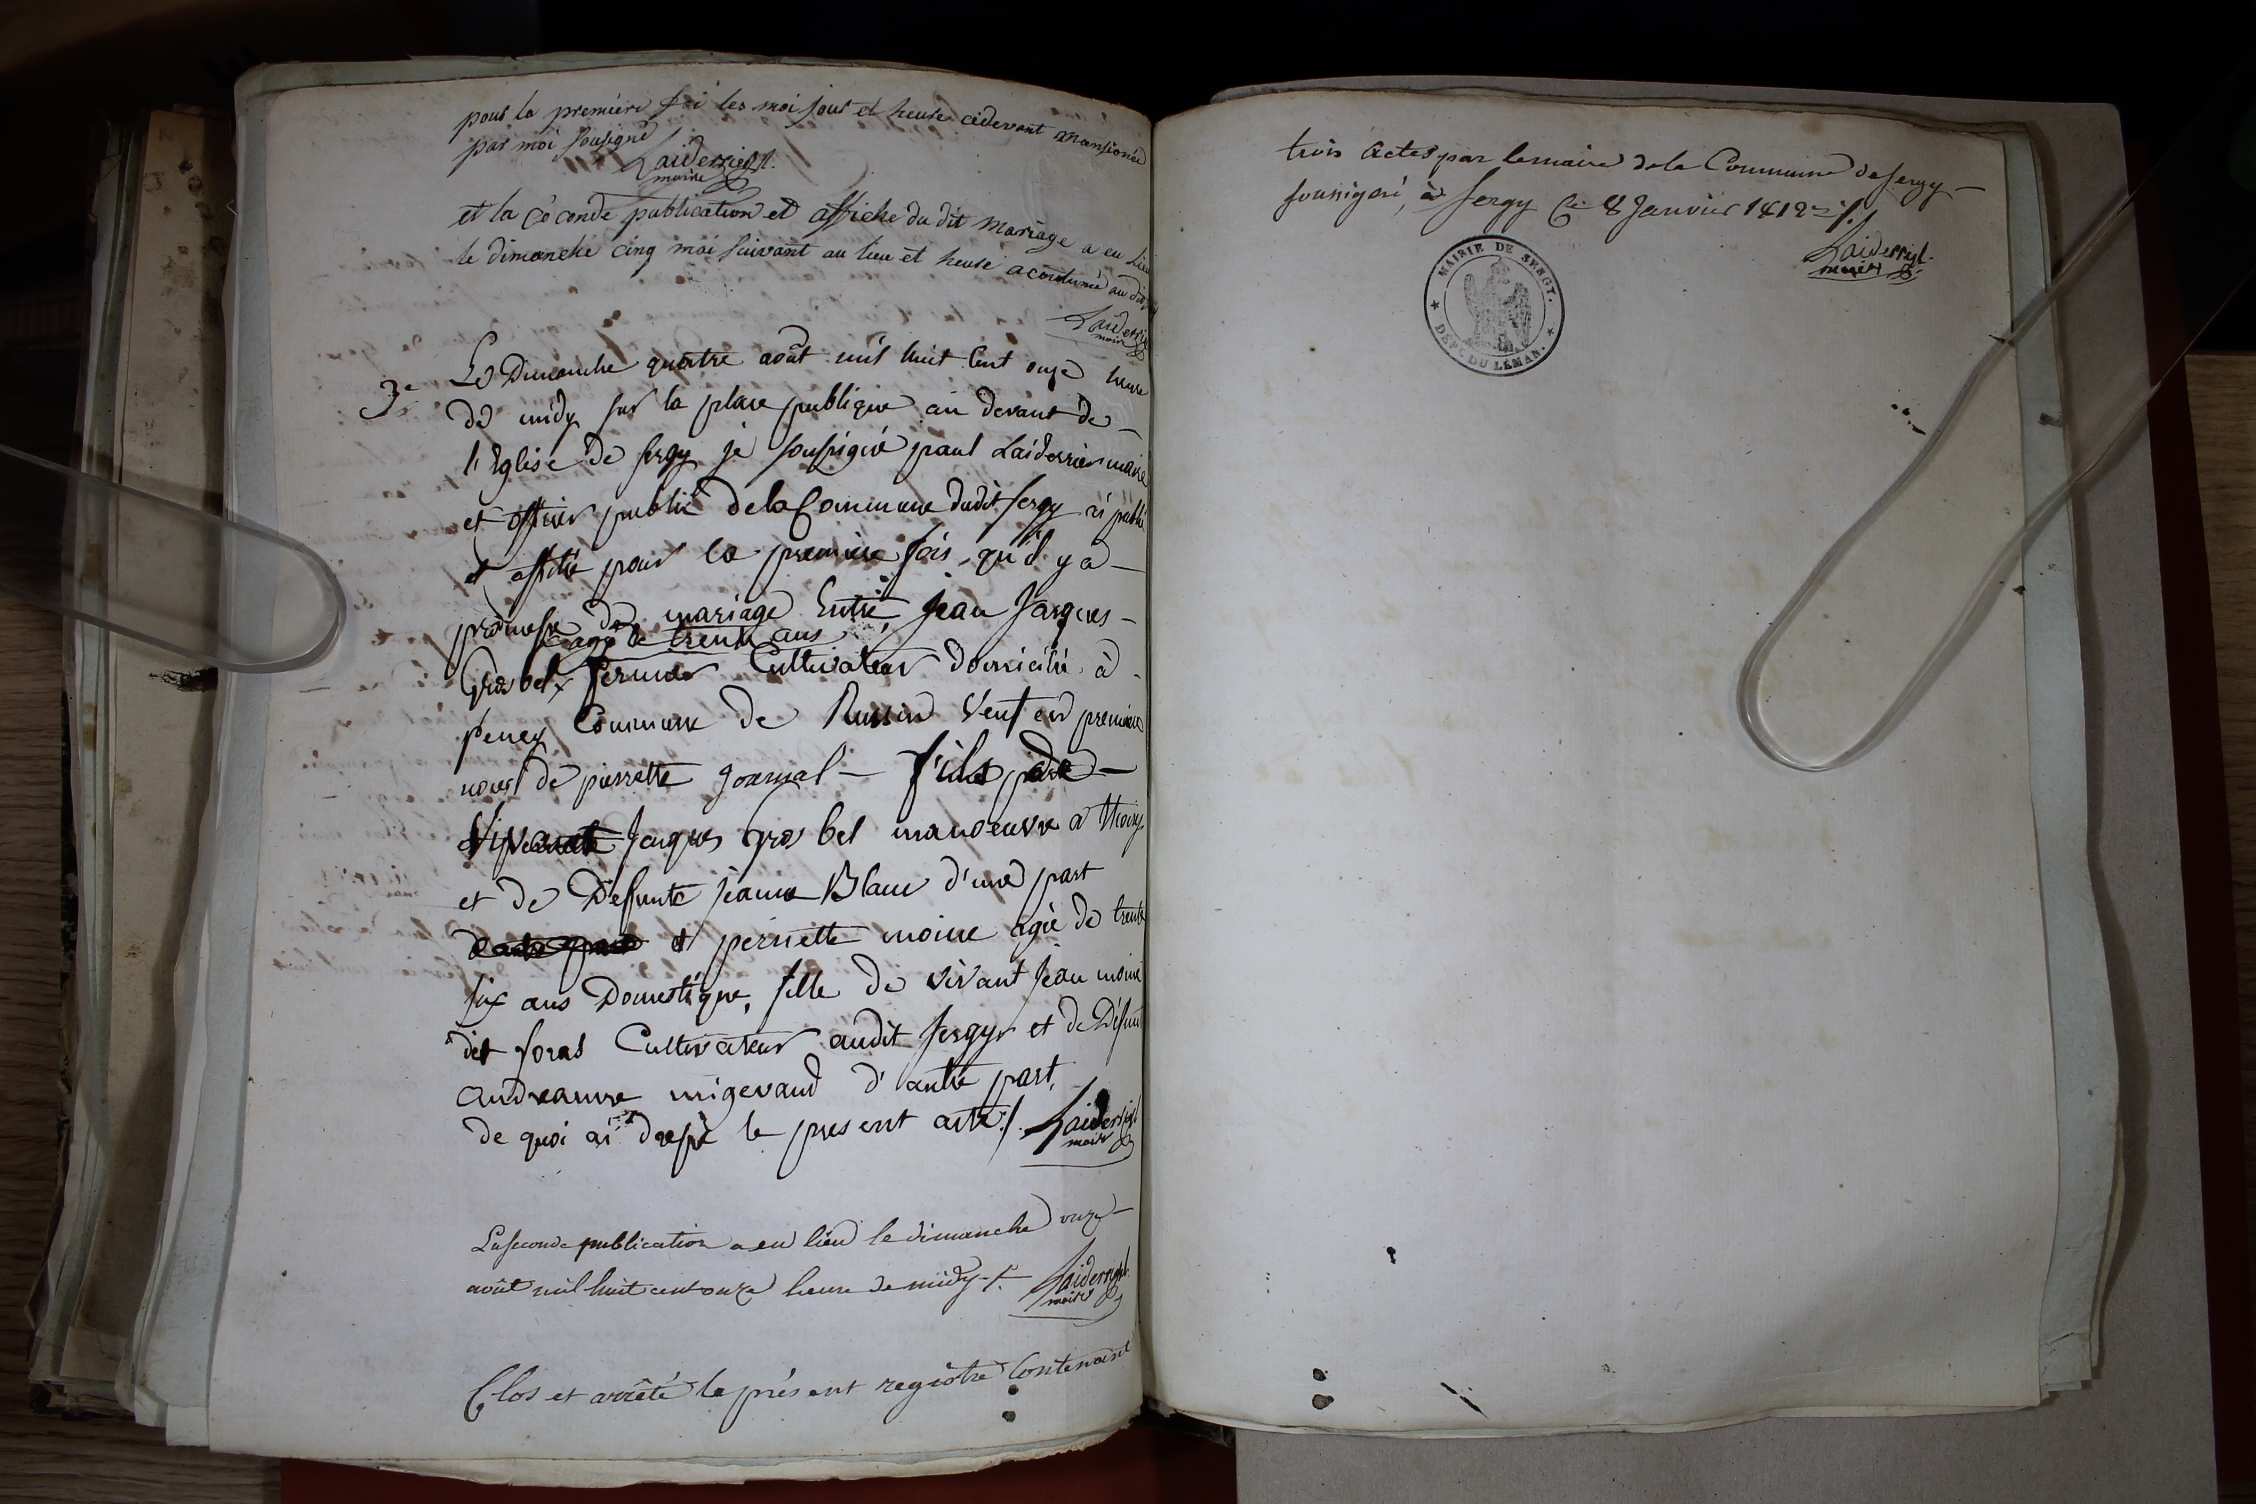 pour la premiere foi les moi jour et heure cidevant mansionée
par moi sousigné
Laiderrier
maire
et la céconde publication et affiche du dit mariage a eu lieu
le dimanche cinq mai suivant au lieu et heure acoutumé au dit
Laiderrier
maire
3e
Le Dimanche quatre août mil huit Cent onze heure
de midy sur la place publique au devant de
l'Eglise de Sergy je soussigné paul Laiderrier maire
et officier public de la Commune dudit Sergy ai publié
et affiché pour la premiere fois, qu'il y a
promesse de mariage Entre, Jean Jacques
agé de trente ans
Grosbel x fermier Cultivateur domicilié à
peney Commune de Russin veuf en premiere
noces de pierrette gournal fils de
Jaques Gros bel manoeuvre a Thoiry
et de Defunte jeanne Blanc d'une part
et pernette moine agée de trente
six ans Domestique, fille de vivant Jean moine
dit foras Cultivateur audit Sergy et de Défunte
andreanne migevand d'autre part,
de quoi ai dressé le present acte ./.
Laiderrier
maire
La seconde publication a eu lieu le dimanche onze
août mil huit cent onze heure de midy ./.
Laiderrier
maire
Clos et arrêté le présent registre Contenant
trois Actes par le maire de la Commune de Sergy
soussigné, à Sergy Ce 8 Janvier 1812 ./.
Laiderrier
maire
MAIRIE DE SERGY.
DÉPT. DU LÉMAN.